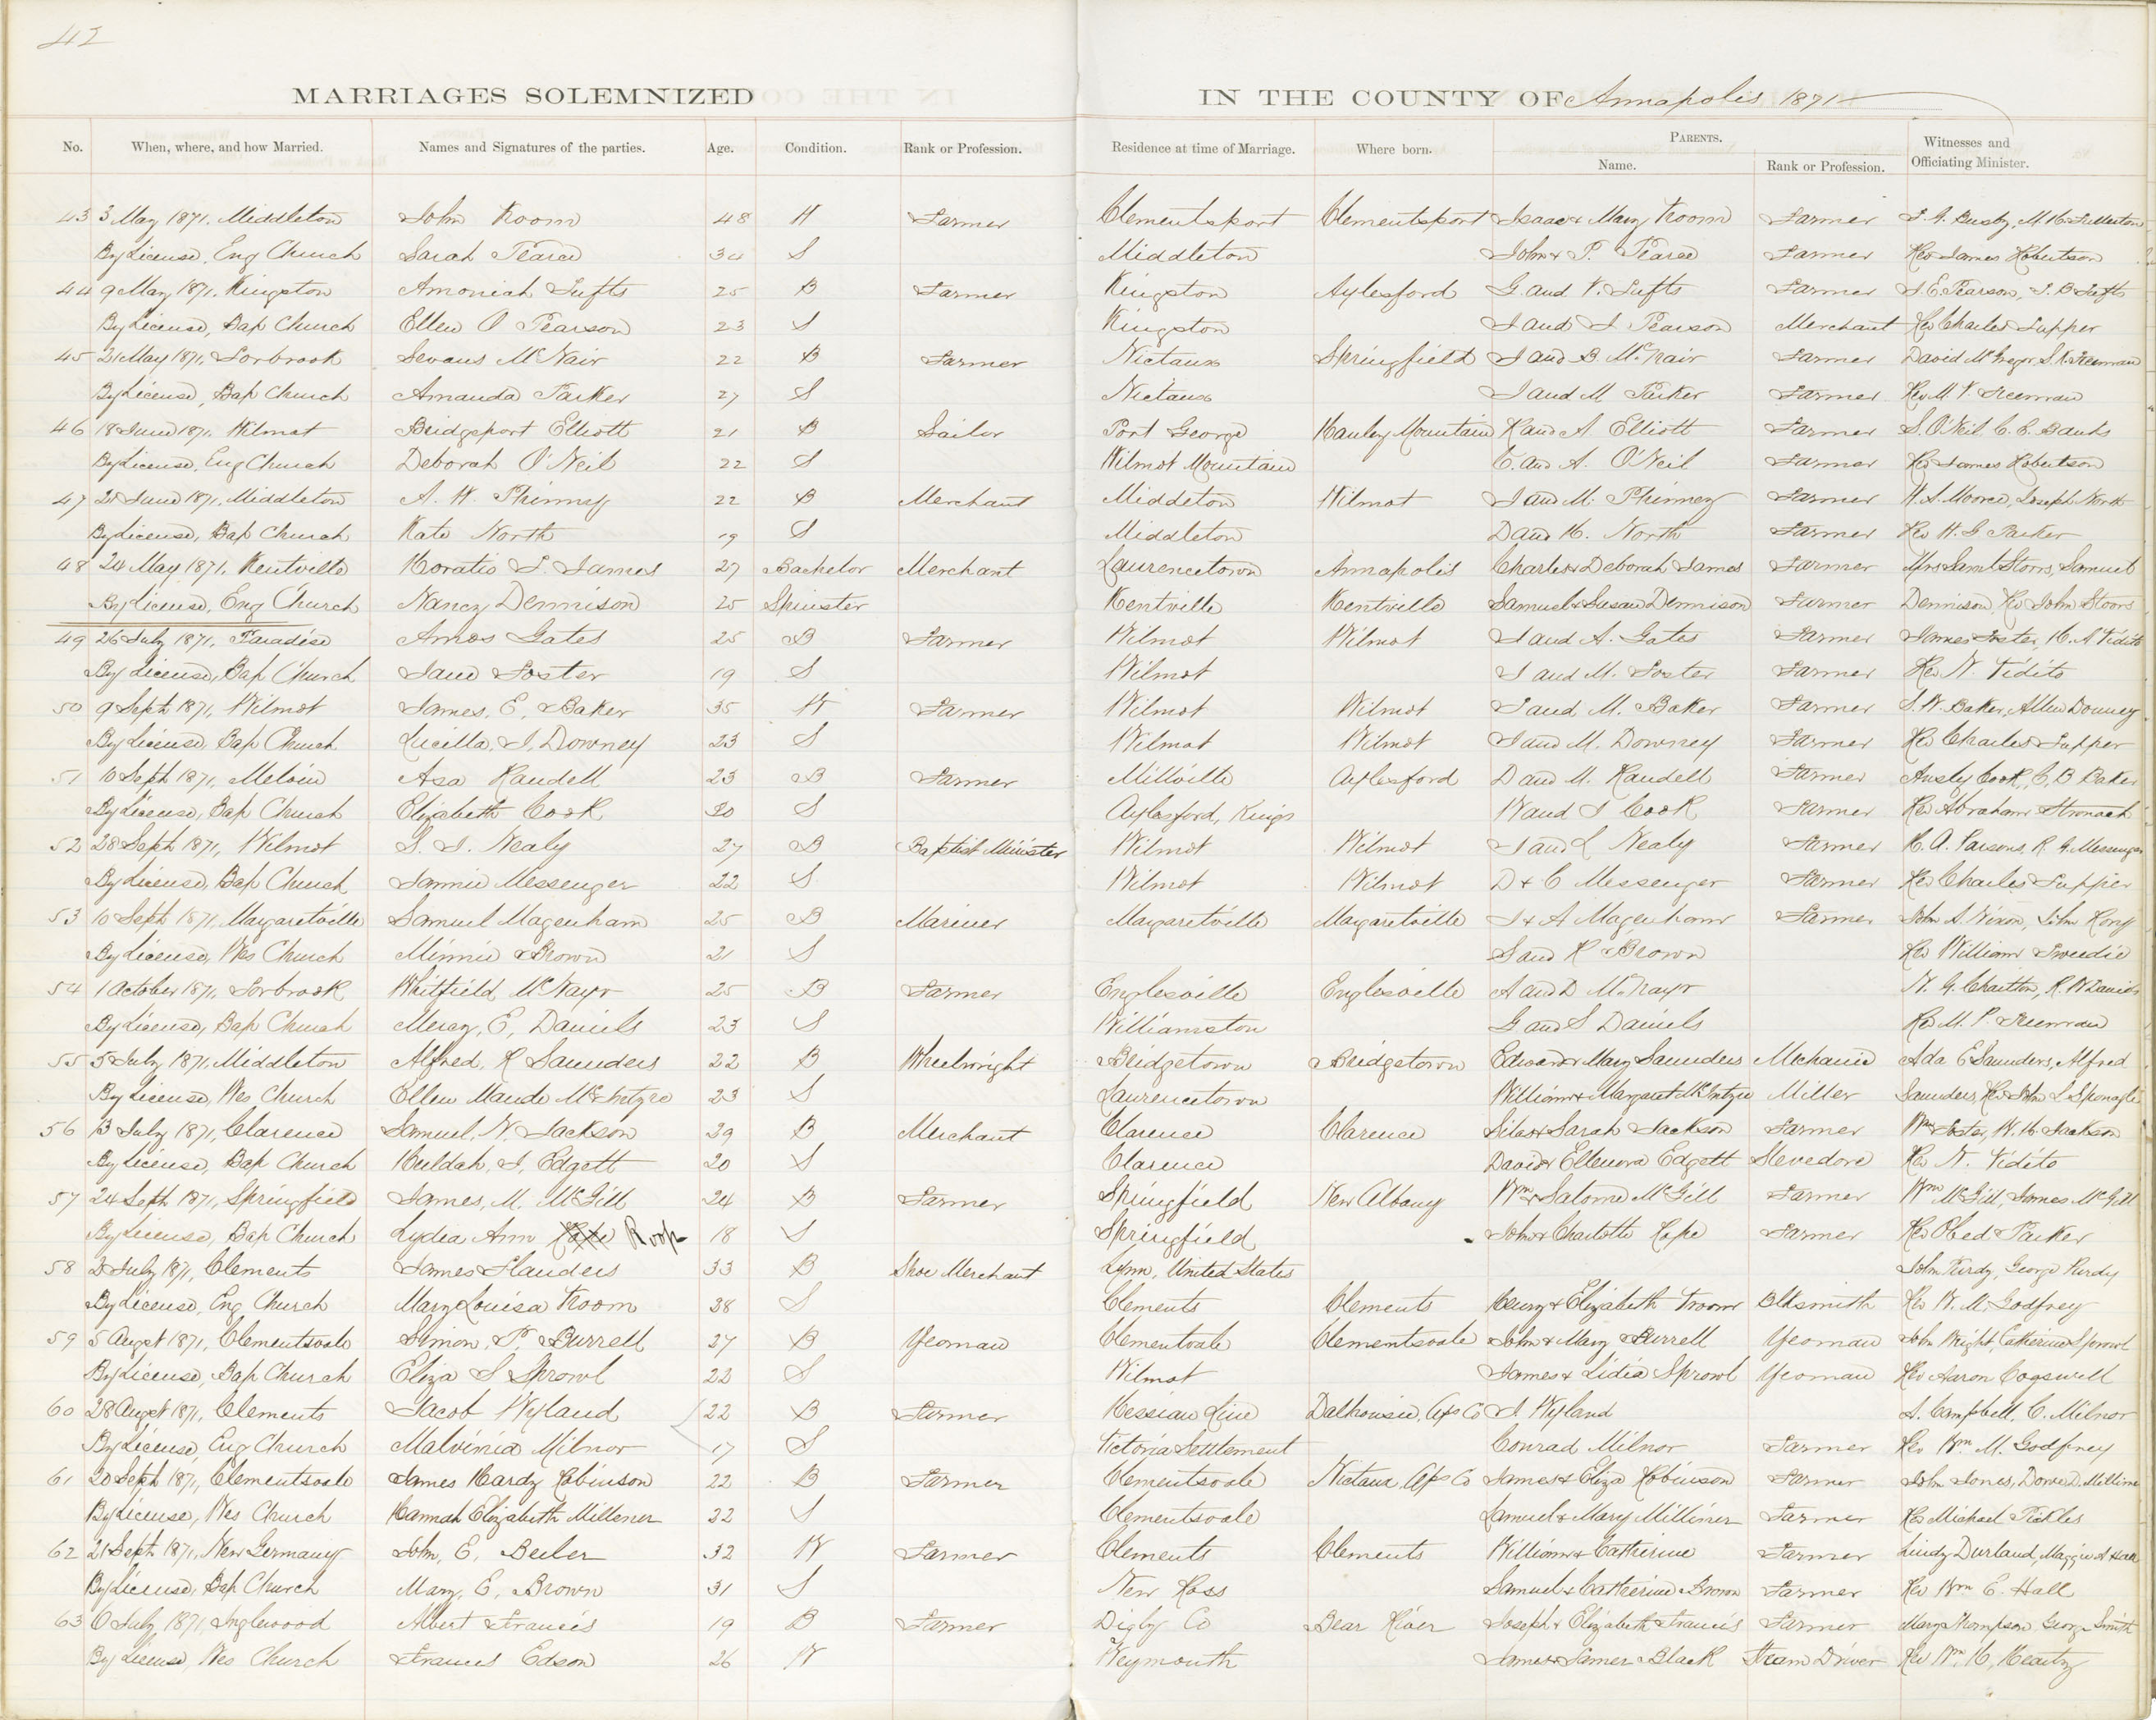 42
MARRIAGES SOLEMNIZED IN THE COUNTY OF Annapolis 1871
No. When, where, and how Married. Names and Signatures of the parties. Age. Condition. Rank or Profession. Residence at time of Marriage. Where born. PARENTS. Name. Rank or Profession. Witnesses and Officiating Minister.
43 3 May 1871. Middleton John Troom 48 W Farmer Clementsport Clementsport Isaac & Mary Troom Farmer
By License, Eng Church Sarah Pearce 34 S Middleton John & P. Pearce Farmer Rev James Robertson
44 9 May 1871. Kingston Amoniah Tufts 25 B Farmer Kingston Aylesford G. and V. Tufts Farmer J. E. Pearson, J. B Tufts
By License, Bap Church Ellen O Pearson 23 S Kingston I and I Pearson Merchant Rev Charles Tupper
45 21 May 1871, Torbrook Sevans McNair 22 B Farmer Nictaux Springfield J and B. McNair Farmer David McGregor, S. K. Freeman
By License, Bap Church Amanda Parker 27 S Nictaux J and M Parker Farmer Rev M. P. Freeman
46 18 June 1871. Wilmot Bridgeport Elliott 21 B Sailor Port George Hanley Mountain R and A. Elliott Farmer S. O'Neil. C. C. Banks
By License, Eng Church Deborah O'Neil 22 S Wilmot Mountain C. and A. O'Neil Farmer Rev James Robertson
47 21 June 1871, Middleton A. W. Phinney 22 B Merchant Middleton Wilmot J and M. Phinney Farmer W. A. Moore, Joseph North
By License, Bap Church Kate North 19 S Middleton D and H. North Farmer Rev W. G. Parker
48 24 May 1871. Kentville Horatio F. James 27 Bachelor Merchant Laurencetown Annapolis Charles & Deborah James Farmer Mrs Saml Storrs, Samuel
By License, Eng Church Nancy Dennison 25 Spinster Kentville Kentville Samuel & Susan Dennison Farmer Dennison, Rev John Storrs
49 26 July 1871, Paradise Amos Gates 25 B Farmer Wilmot Wilmot J and A. Gates Farmer James Foster, H. A Vidito
By License, Bap Church Jane Foster 19 S Wilmot J and M. Foster Farmer Rev N. Vidito
50 9 Sept 1871, Wilmot James, E, Baker 35 W Farmer Wilmot Wilmot J and M. Baker Farmer S. W. Baker, Allen Downey
By License, Bap Church Lucilla, J, Downey 23 S Wilmot Wilmot J and M. Downey Farmer Rev Charles Tupper
51 10 Sept 1871, Melvin Asa Randell 23 B Farmer Millville Aylesford D and M. Randell Farmer Ansly Cook, C, B Baker
By License, Bap Church Elizabeth Cook 20 S Aylesford, Kings W and T Cook Farmer Rev Abraham Stronach
52 28 Sept 1871, Wilmot S. J. Nealy 27 B Baptist Minister Wilmot Wilmot J and L Nealy Farmer H. A. Parsons, R. G. Messenger
By License, Bap Church Fannie Messenger 22 S Wilmot Wilmot D & C Messenger Farmer Rev Charles Tupper
53 10 Sept 1871, Margaretville Samuel Magenham 25 B Mariner Margaretville Margaretville J & A Magenham Farmer John S. Nixon, John Rony
By License, Wes Church Minnie Brown 21 S S and R Brown Rev William Tweedie
54 1 October 1871, Torbrook Whitfield McNayr 25 B Farmer Englesville Englesville A and D McNayr
By License, Bap Church Mercy, E, Daniels 23 S Williamston G and S Daniels Rev M. P. Freeman
55 5 July 1871, Middleton Alfred, R Saunders 22 B Wheelwright Bridgetown Bridgetown Edward & Mary Saunders Mechanic Ada E Saunders, Alfred
By License, Wes Church Ellen Maude McIntyre 23 S Laurencetown William & Margaret McIntyre Miller Saunders, Rev John L Sponagle
56 13 July 1871, Clarence Samuel. N. Jackson 29 B Merchant Clarence Clarence Silas & Sarah Jackson Farmer Wm Foster, W. H. Jackson
By License, Bap Church Huldah, J, Edgett 20 S Clarence David & Ellenora Edgett Stevedore Rev N. Vidito
57 24 Sept 1871, Springfield James, M. McGill 24 B Farmer Springfield New Albany Wm & Salome McGill Farmer Wm McGill, James McGill
By License, Bap Church Lydia Ann Roop 18 S Springfield John & Charlotte Rope Farmer Rev Obed Parker
58 2 July 1871, Clements James Flanders 33 B Shoe Merchant Lynn, United States John Purdy, George Purdy
By License, Eng Church Mary Louisa Troom 38 S Clements Clements Henry & Elizabeth Troom Blksmith Rev W. M. Godfrey
59 5 Augst 1871, Clementsvale Simon, P, Burrell 27 B Yeoman Clementvale Clementsvale John & Mary Burrell Yeoman John Wright, Catherine Sprowl
By License, Bap Church Eliza S Sprowl 22 S Wilmot James & Lidia Sprowl Yeoman Rev Aaron Cogswell
60 28 Augst 1871, Clements Jacob Weyland 22 B Farmer Hessian Line Dalhousie, Aps Co J. Weyland S. Campbell, C. Milnor
By License, Eng Church Malvinia Milnor 17 S Victoria Settlement Conrad Milnor Farmer Rev Wm. M. Godfrey
61 20 Sept 1871, Clementsvale James Hardy Robinson 22 B Farmer Clementsvale Nictaux, Aps Co James & Eliza Robinson Farmer John Jones,
By License, Wes Church Hannah Elizabeth Millener 32 S Clementsvale Samuel & Mary Milliner Farmer Rev Michael Pickles
62 21 Sept 1871, New Germany John, E, Beeler 32 W Farmer Clements Clements William & Catherine Farmer Lindy Durland, Maggie A Hall
By License, Bap Church Mary, E, Brown 31 S New Ross Samuel & Catherine Brown Farmer Rev Wm E. Hall
63 6 July 1871, Inglewood Albert Francis 19 B Farmer Digby Co Bear River Joseph & Elizabeth Francis Farmer Mary Thompson, George Smith
By License, Wes Church Frances Edson 26 W Weymouth James & Black Team Driver Rev Wm. H, Heartz